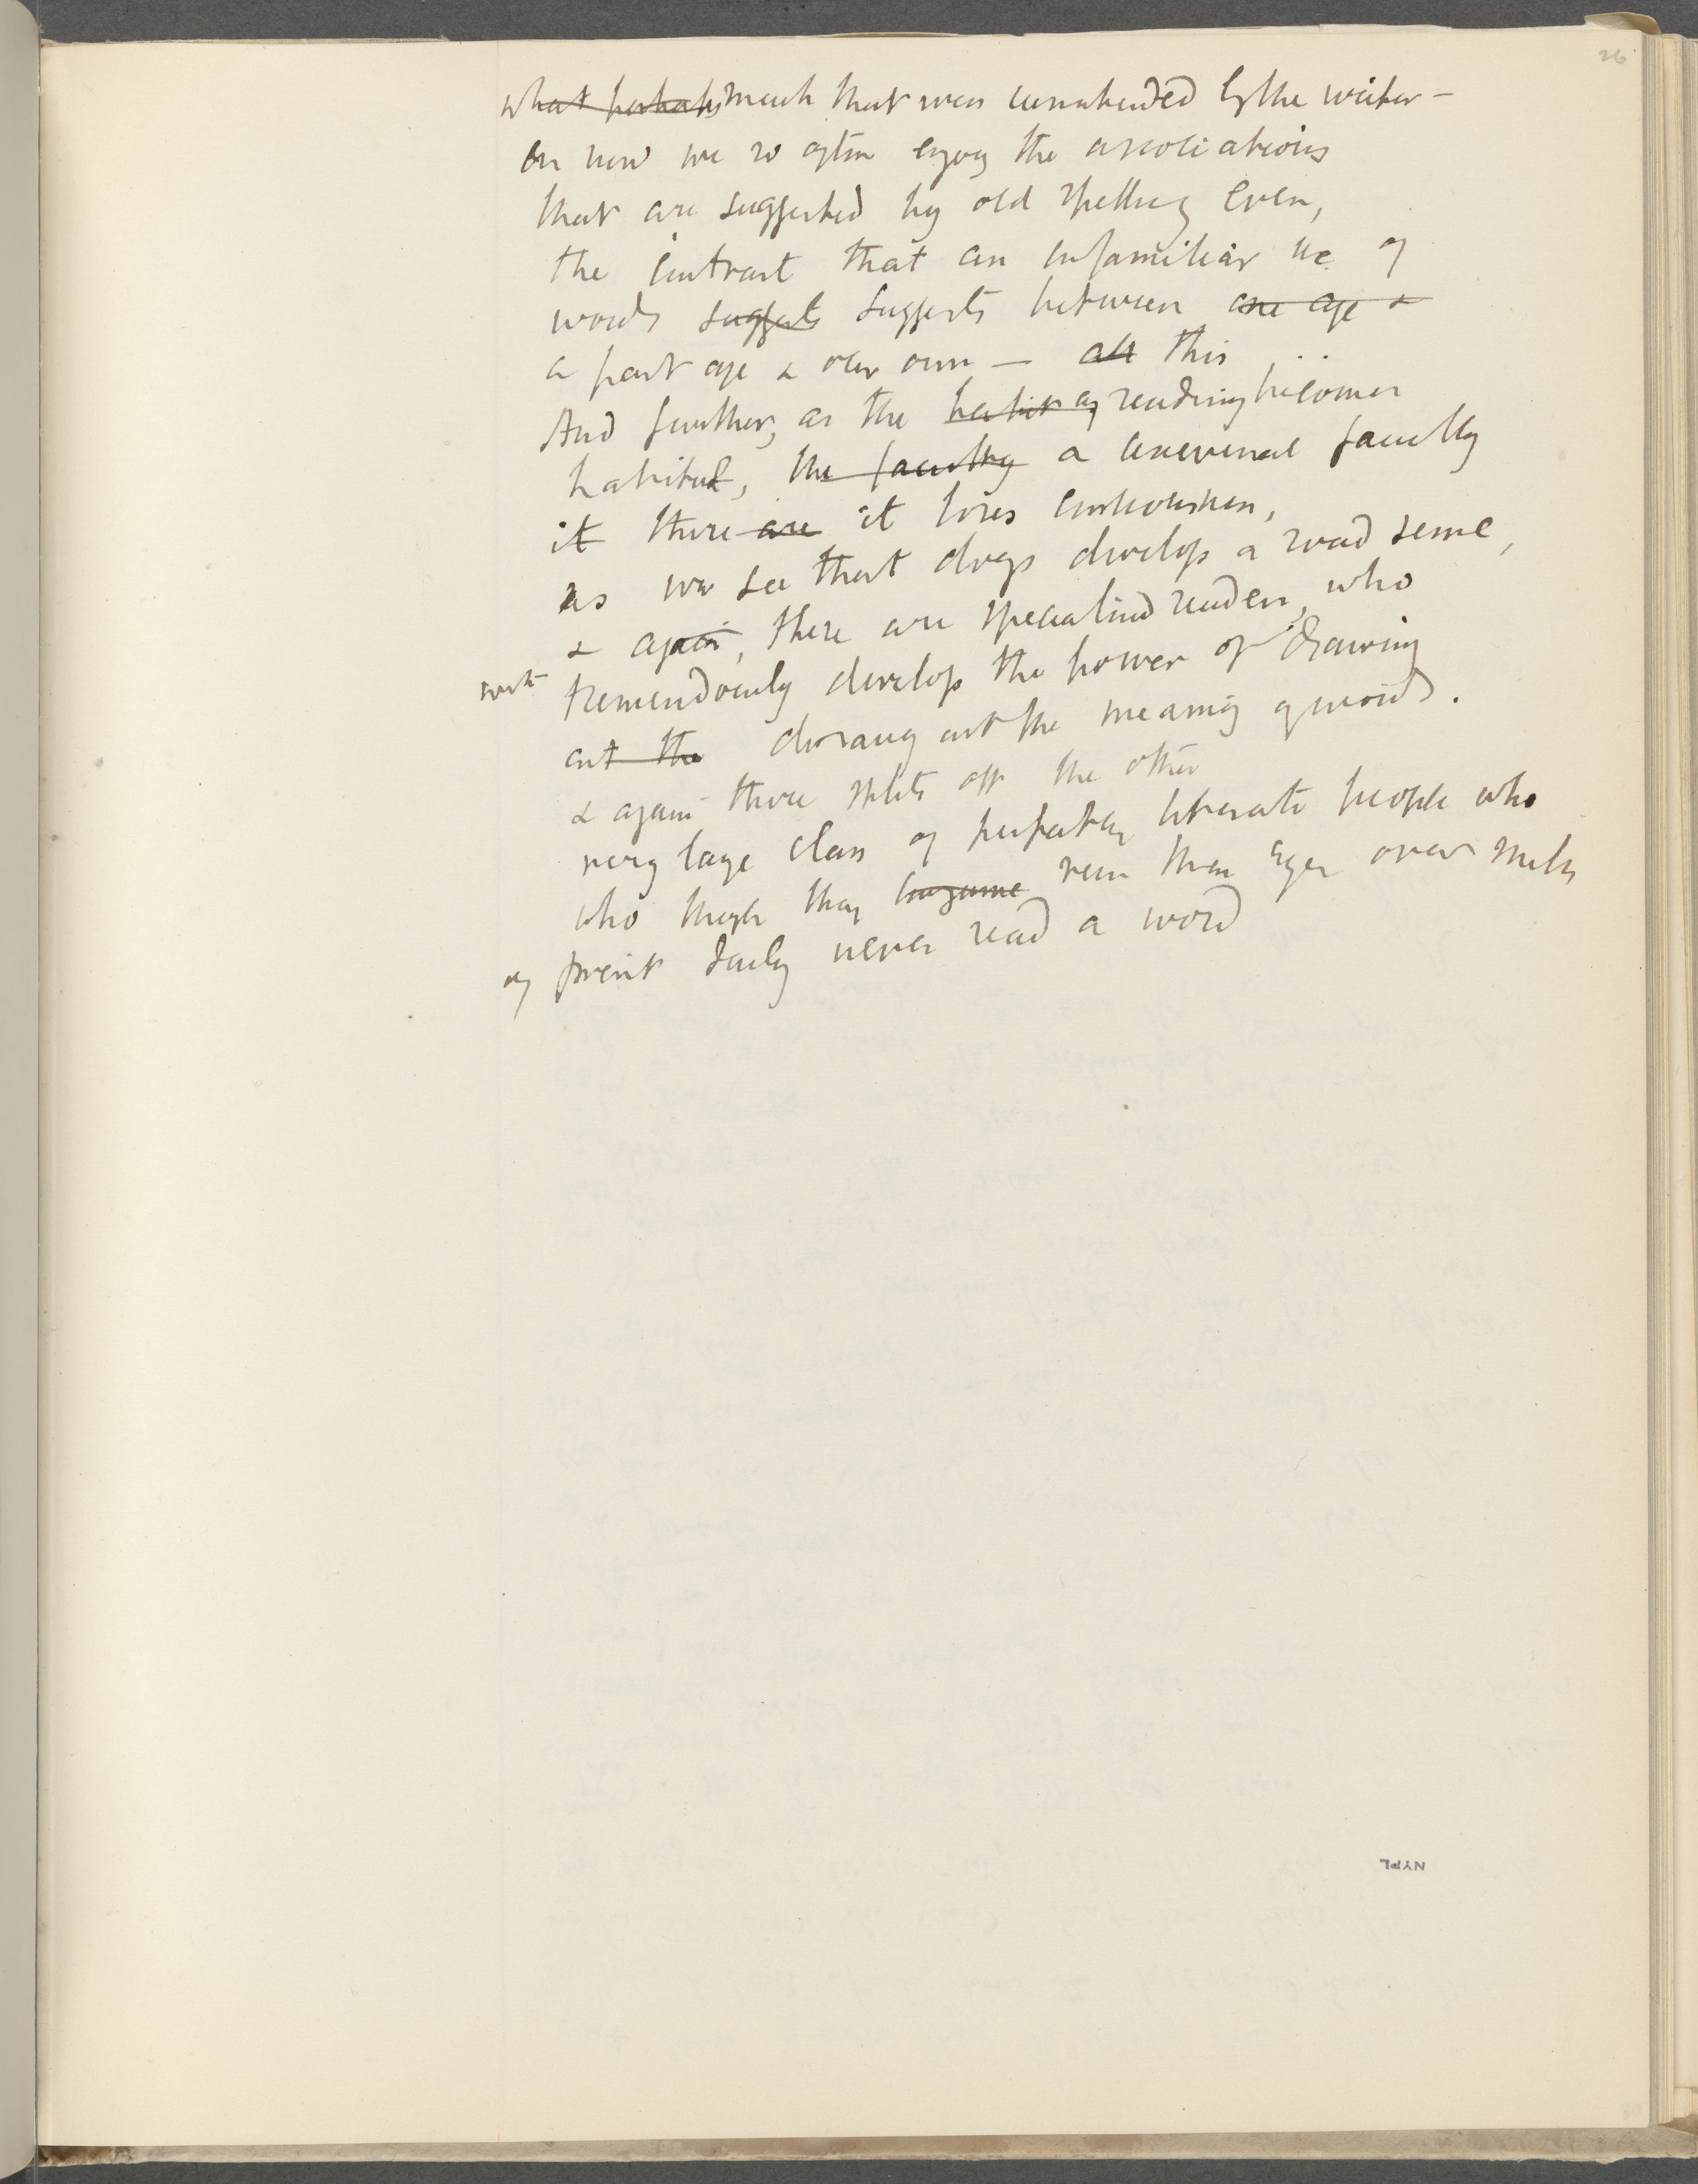 26
what perhaps much that was unintended by the writer –
on how we so often enjoy the associations
that are suggested by old spelling even,
the contrast that an unfamiliar use of
words suggests suggests between one age &
a past age & our own – all this ..
And further, as the habit of reading becomes
habitual, the faculty a universal faculty
it there are it loses consciousness,
as we see that dogs develop a road sense,
& again, there are specialised readers, who
tremendously develop the power of drawing
out the drawing out the meaning of words.
& again there splits off the other
very large class of perfectly literate people who
who though they run their eyes over miles
of print daily never read a word
NYPL